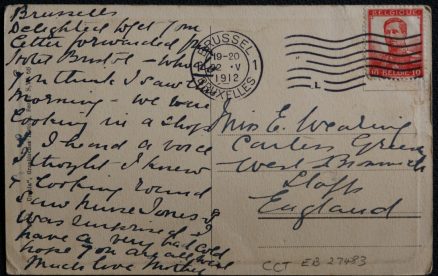 Brussells
Delighted to get your
letter forwarded from
Hotel Bristol - Who do
you think I saw this
morning - we were
looking in a shop
& I heard a voice
I thought I knew
& looking round
saw nurse Jones I
was surprised. I
have a very bad cold
hope you are all well
much love Mother
BRUSSEL
19-20
22 -V
1912
BRUXELLES
1
BELGIQUE
10 BELGIË 10
Miss E. Wearing
Carters Green
West Bromwich
Staffs
England
CCT EB 27483